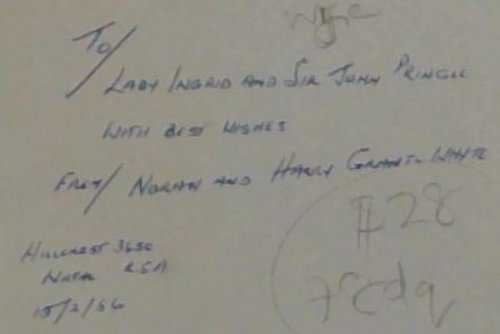 To/
LADY INGRID AND SIR JOHN PRINGLE
WITH BEST WISHES
FROM/ NORAH AND HARRY GRANT-WHYTE
HILLCREST 3650
NATAL RSA
$28